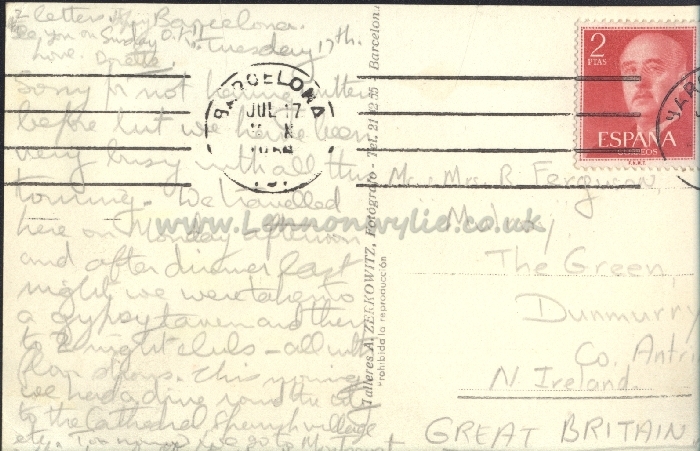 2 letters Barcelona.
See you on Sunday O.K.
Love. Tuesday 17th.
Sorry for not having written
before but we have been
very busy with all this
touring. We travelled
here on Monday afternoon
and after dinner last
night, we were taken to
a gypsy tavern and then
to 2 nightclubs - all with
floor shows. This morning
we had a drive round the city
to the Cathedral Spanish village
etc. we go to Montserrat
BARCELONA
JUL 17
Talleres A. ZERKOWITZ, Fotógrafo - Tel. 21 02 55 - Barcelona
Prohibida la reproducción
2
PTAS
ESPAÑA
CORREOS
BAR
Mr. & Mrs. R. Ferguson,
The Green,
Dunmurry
Co. Antri
N Ireland.
GREAT BRITAIN.
www.Lennonwylie.co.uk